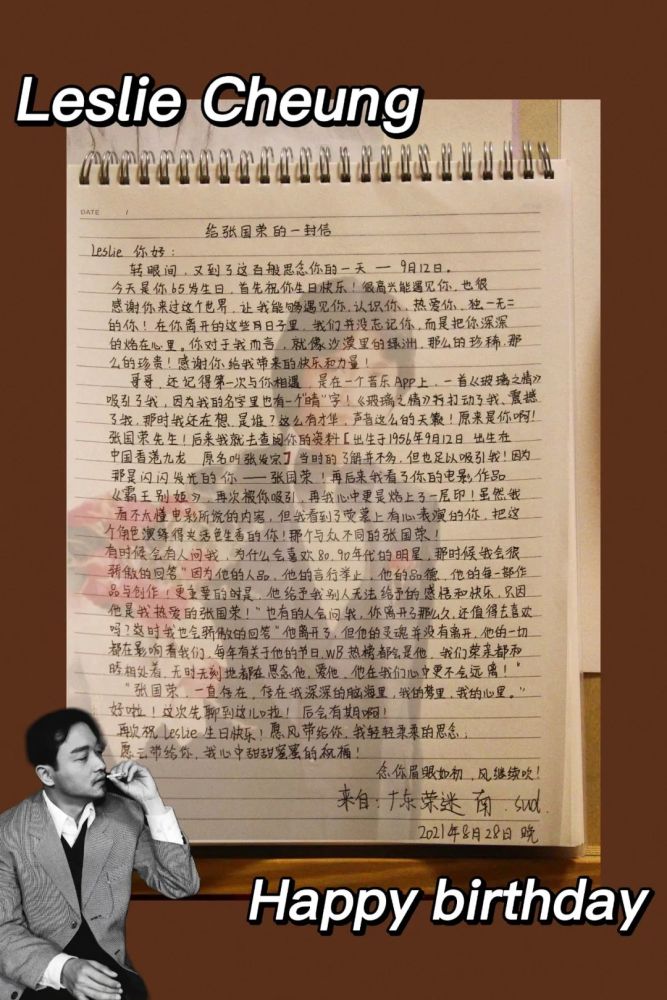 Leslie Cheung
DATE /
给张国荣的一封信
Leslie 你好：
转眼间，又到了这百般思念你的一天 — 9月12日。
今天是你65岁生日，首先祝你生日快乐！很高兴能遇见你，也很
感谢你来过这个世界，让我能够遇见你、认识你、热爱你，独一无二
的你！在你离开的这些月日子里，我们并没忘记你，而是把你深深
的烙在心里。你对于我而言，就像沙漠里的绿洲，那么的珍稀，那
么的珍贵！感谢你给我带来的快乐和力量！
哥哥，还记得第一次与你相遇，是在一个音乐App上，一首《玻璃之情》
吸引了我，因为我的名字里也有一个"晴"字！《玻璃之情》打动了我、震撼
了我，那时我还在想，是谁？这么有才华，声音这么的天籁！原来是你啊！
张国荣先生！后来我就去查阅你的资料【出生于1956年9月12日 出生在
中国香港九龙 原名叫张发宗】当时的了解并不多，但也足以吸引我！因为
那是闪闪发光的你 —— 张国荣！再后来我看了你的电影作品
《霸王别姬》，再次被你吸引，再我心中更是烙上了一层印！虽然我
看不太懂电影所说的内容，但我看到了荧幕上有心表演的你，把这
个角色演绎得活色生香的你！那个与众不同的张国荣！
有时候会有人问我，为什么会喜欢80、90年代的明星，那时候我会很
骄傲的回答"因为他的人品，他的言行举止，他的品德，他的每一部作
品与创作！更重要的时是，他给予我别人无法给予的感悟和快乐，只因
他是我热爱的张国荣！"也有的人会问我，你离开了那么久，还值得去喜欢
吗？这时我也会骄傲的回答"他离开了，但他的灵魂并没有离开，他的一切
都在影响着我们，每年有关于他的节日，WB热榜都会是他，我们荣亲都和
睦相处着，无时无刻地都在思念他，爱他，他在我们心中更不会远离！"
"张国荣，一直存在，存在我深深的脑海里，我的梦里，我的心里。"
好啦！这次先聊到这儿啦！后会有期啊！
再次祝 Leslie 生日快乐！愿风带给你，我轻轻柔柔的思念；
愿云带给你，我心中甜甜蜜蜜的祝福！
念你眉眼如初，风继续吹！
来自：广东荣迷 南 . sud.
2021年8月28日 晚
Happy birthday